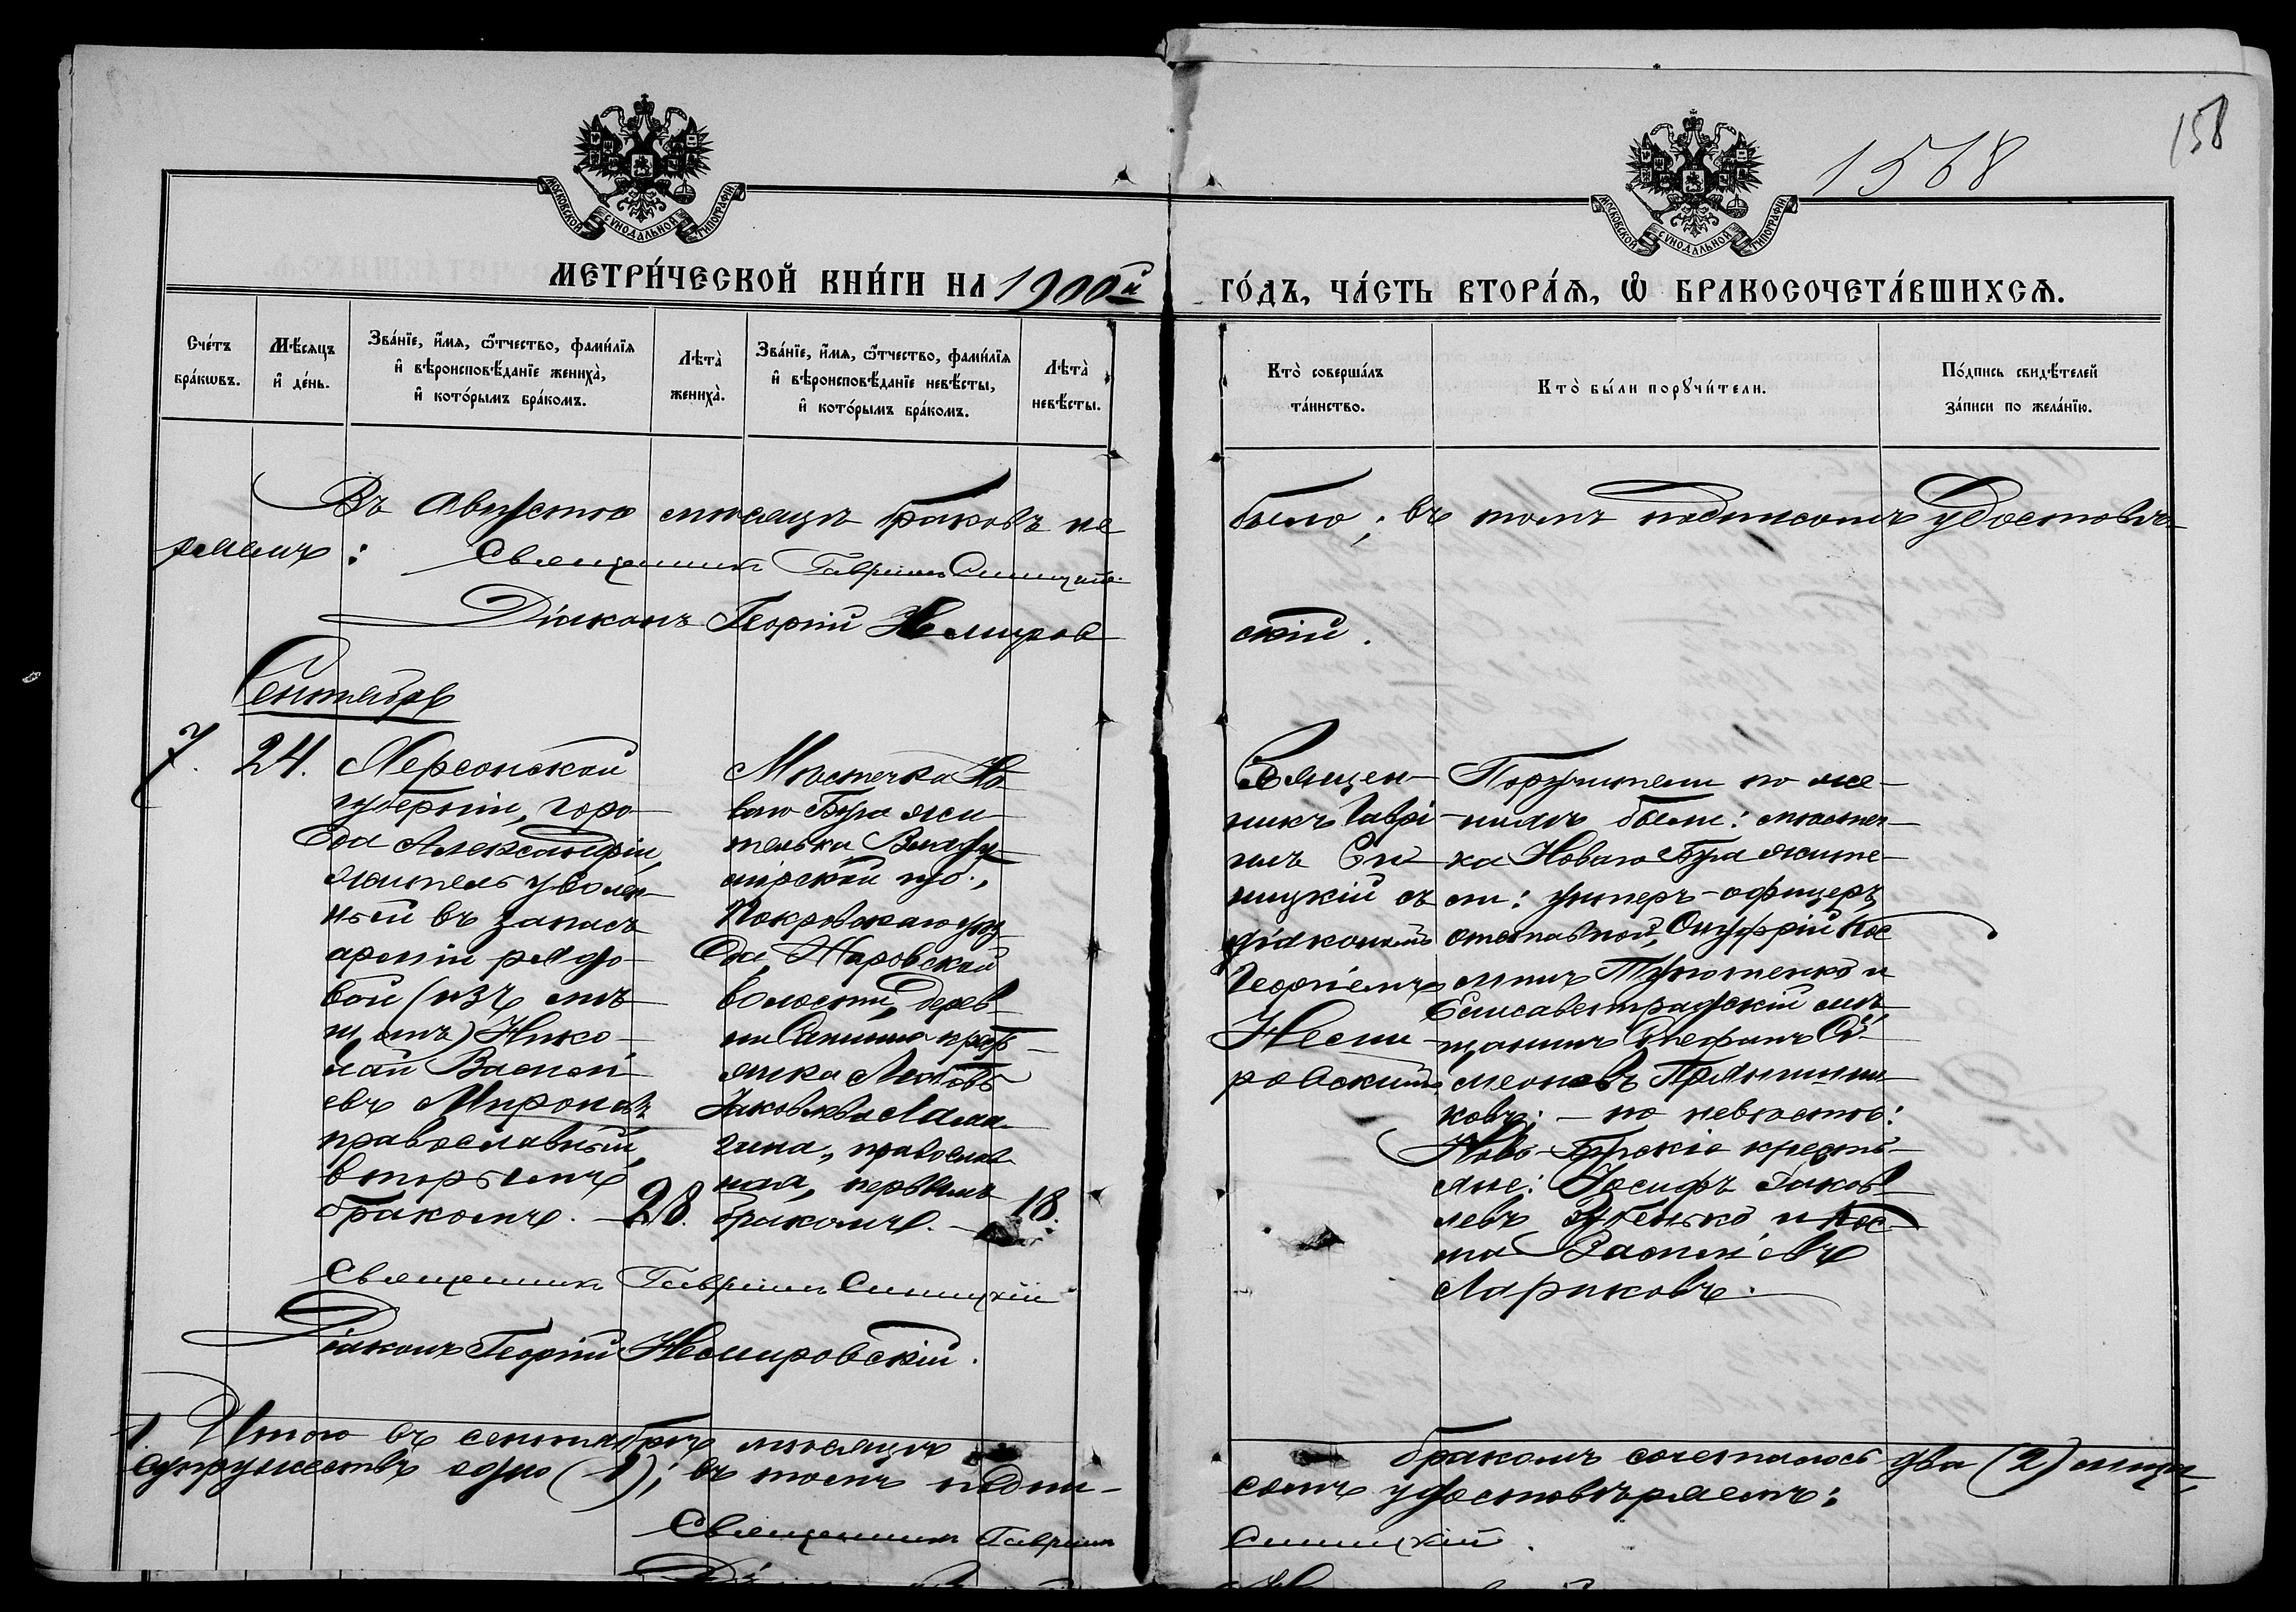 158
1568
МОСКОВСКОЙ СѴНОДАЛЬНОЙ ТИПОГРАФІИ
МОСКОВСКОЙ СѴНОДАЛЬНОЙ ТИПОГРАФІИ
МЕТРИ́ЧЕСКОЙ КНИ́ГИ НА 1900й
ГО́ДЪ, ЧА́СТЬ ВТОРА́Ѧ, Ѽ БРАКОСОЧЕТА́ВШИХСѦ.
Сче́тъ бра́кѡвъ.
Мѣ́сяцъ и҆ де́нь.
Зва́нїе, и҆́мѧ, ѻ҆́тчество, фами́лїѧ
и҆ вѣроисповѣ́данїе жениха̀,
и҆ кото́рымъ бра́комъ.
Лѣта̀ жениха̀.
Зва́нїе, и҆́мѧ, ѻ҆́тчество, фами́лїѧ
и҆ вѣроисповѣ́данїе невѣ́сты,
и҆ кото́рымъ бра́комъ.
Лѣта̀ невѣ́сты.
Кто̀ соверша́лъ та́инство.
Кто̀ бы́ли порꙋчи́тели.
По́дпись свидѣ́телей за́писи по жела́нїю.
Въ Августѣ мѣсяцѣ браковъ не было; въ томъ подписомъ удостовѣ-
ряемъ: Священникъ Гавріилъ Синицкій.
Діаконъ Георгій Немировскій.
Сентябрь
7. 24.
Херсонской
губерніи, горо-
да Александріи,
житель уволен-
ный въ запасъ
арміи рядо-
вой (изъ мѣ-
щанъ) Нико-
лай Василі-
евъ Мироновъ,
православный,
вторымъ
бракомъ. — 28.
Мѣстечка Но-
ваго Буга жи-
телька Влади-
мірской губ.,
Покровскаго уѣз-
да, Жаровской
волости, дерев-
ни крест-
янка Любовь
Яковлева
православ-
ная, первымъ
бракомъ. — 18.
Священ-
никъ Гаврі-
илъ Си-
ницкій съ
діакономъ
Георгіемъ
Неми-
ровскимъ
Поручители по же-
нихѣ были: мѣстеч-
ка Новаго Буга жите-
ли: унтеръ-офицеръ
отставной, Онуфрій Кос-
минъ Тютюненко и
Елисаветградскій мѣ-
щанинъ Стефанъ Си-
меоновъ Прянишни-
ковъ; — по невѣстѣ:
Ново-Бугскіе кресть-
яне: Іосифъ Іаков-
левъ Зубенько и Кос-
ма Василіевъ
Лариковъ.
Священникъ Гавріилъ Синицкій
Діаконъ Георгій Немировскій.
1. Итого въ сентябрѣ мѣсяцѣ бракомъ сочеталось два (2) лица,
супружествъ одно (1); въ томъ подписомъ удостовѣряемъ:
Священникъ Гавріилъ Синицкій.